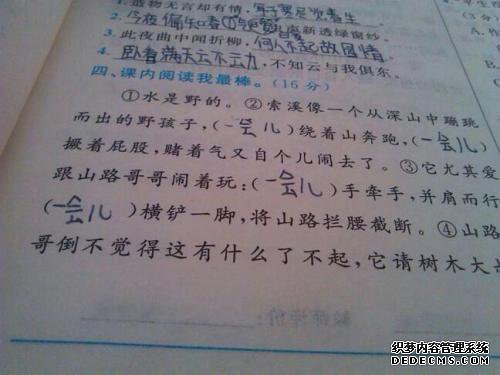 1.造物无言却有情，每于寒尽觉春生
2.今夜偏知春 新透绿窗纱。
3.此夜曲中闻折柳，何人不起故园情。
4.卧看满天云不动，不知云与我俱东。
四、课内阅读我最棒。(16分)
①水是野的。②索溪像一个从深山中蹦跳
而出的野孩子，(一会儿)绕着山奔跑，(一会儿)
撅着屁股，赌着气又自个儿闹去了。③它尤其爱
跟山路哥哥闹着玩：(一会儿)手牵手，并肩而行
(一会儿)横铲一脚，将山路拦腰截断。④山路
哥倒不觉得这有什么了不起，它请树木大
(3分
A.作
织梦内容管理系统
DEDECMS.COM